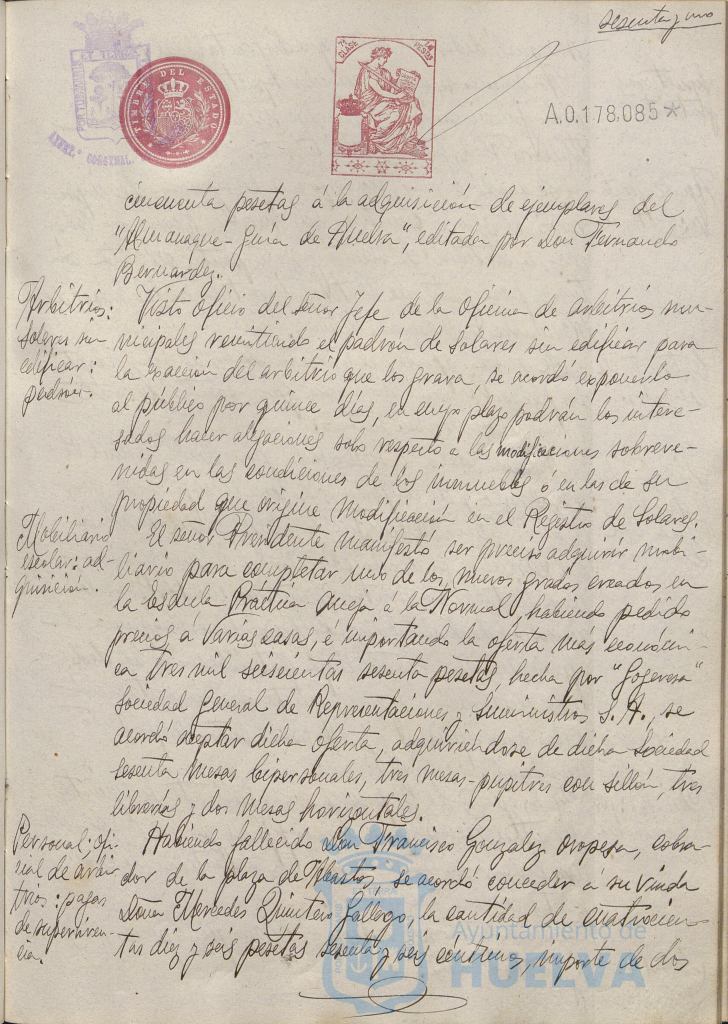 sesenta y uno
7ª CLASE
PESETAS
TIMBRE DEL ESTADO
A.0.178.085*
cincuenta pesetas á la adquisición de ejemplares del
"Almanaque-Guía de Huelva", editada por Don Fernando
Bernardez.
Arbitrios:
solares sin
edificar:
padrón.
Visto oficio del señor Jefe de la oficina de arbitrios mu-
nicipales remitiendo el padrón de solares sin edificar para
la exacción del arbitrio que los grava, se acordó exponerlo
al público por quince días, en cuyo plazo podrán los intere-
sados hacer alegaciones solo respecto a las modificaciones sobreve-
nidas en las condiciones de los inmuebles o en las de su
propiedad que origine modificación en el Registro de Solares.
Mobiliario
escolar: ad-
quisición.
El señor Presidente manifestó ser preciso adquirir mobi-
liario para completar uno de los nuevos grados creados en
la Escuela Práctica Aneja á la Normal, habiendo pedido
precios á varias casas, é importando la oferta más económi-
ca tres mil seiscientas sesenta pesetas, hecha por "Sogeresa"
Sociedad General de Representaciones y Suministros S.A., se
acordó aceptar dicha oferta, adquiriéndose de dicha Sociedad
sesenta mesas bipersonales, tres mesas-pupitres con sillón, tres
librerías y dos mesas horizontales.
Personal; ofi-
cial de arbi-
trios: pagas
de superviven-
cia.
Habiendo fallecido Don Francisco Gonzalez Oropesa, cobra-
dor de la plaza de Abastos, se acordó conceder á su viuda
Doña Mercedes Quintero Gállego, la cantidad de cuatrocien-
tas diez y seis pesetas sesenta y seis céntimos, importe de dos
Ayuntamiento de
HUELVA